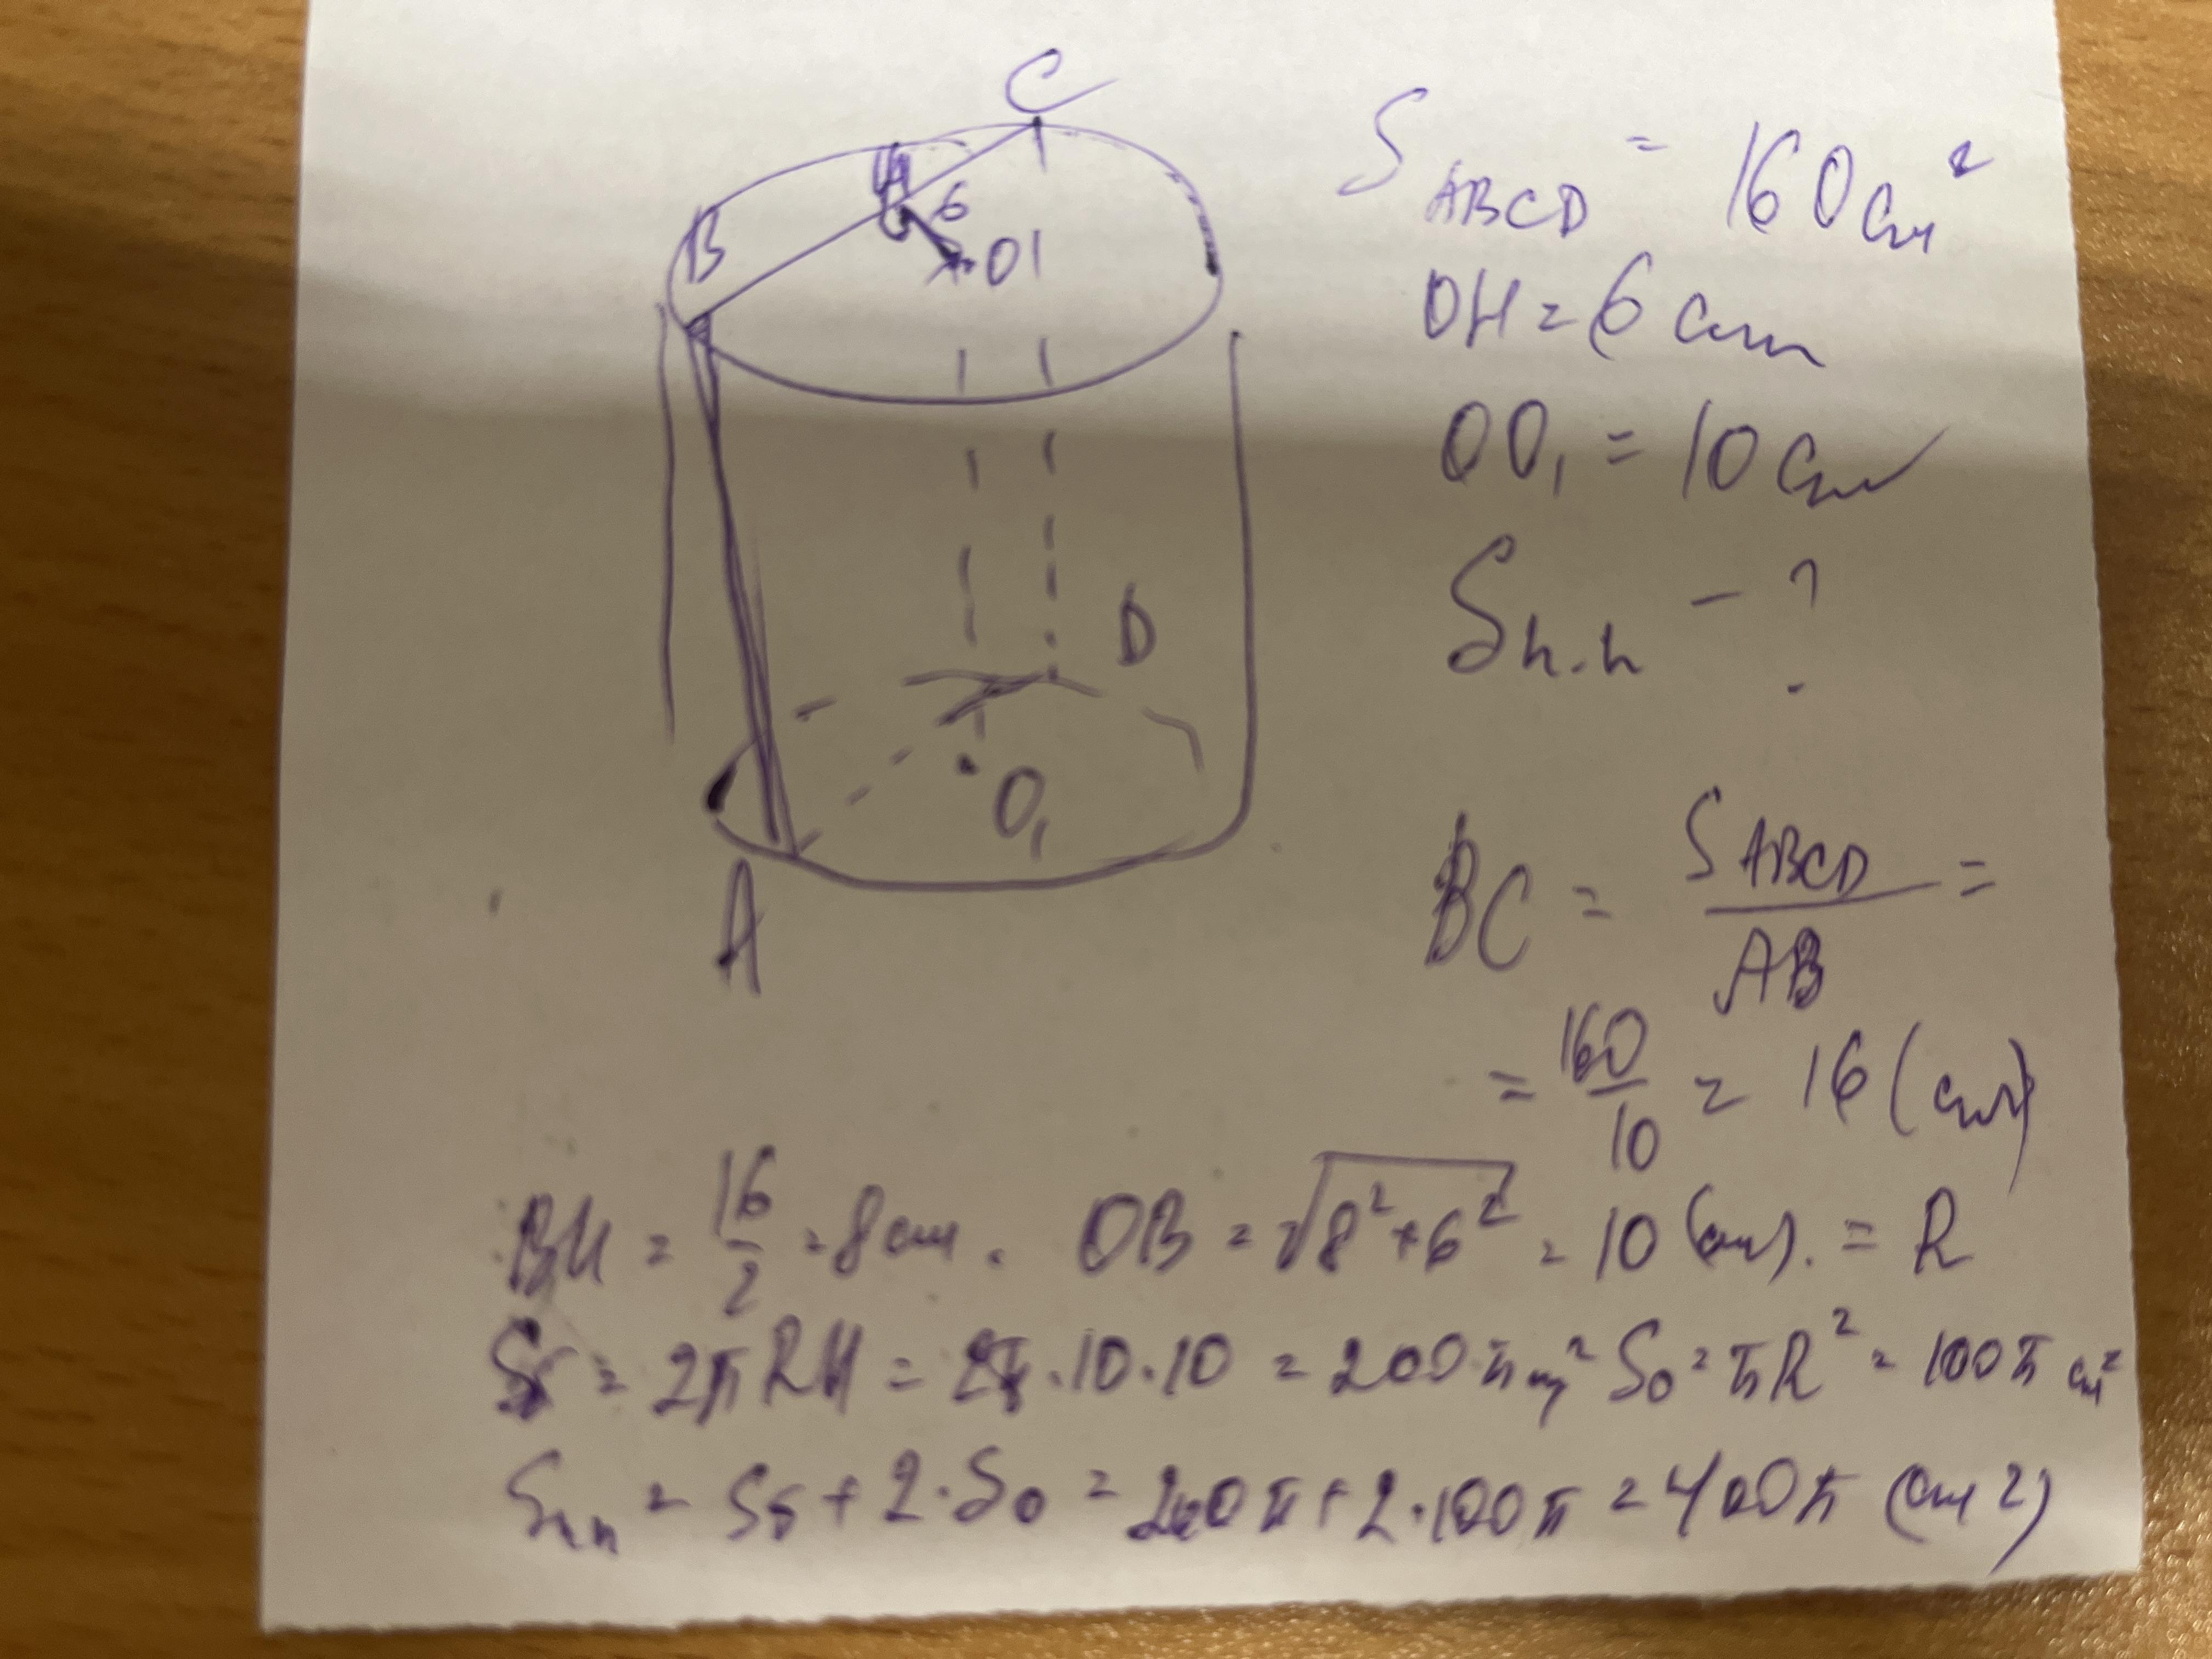 C
H
6
B
O
D
O₁
A
S ABCD = 160 см²
OH = 6 см
OO₁ = 10 см
Sп.п - ?
BC = S ABCD / AB =
= 160/10 = 16 (см)
BH = 16/2 = 8 см. OB = √8²+6² = 10 (см). = R
Sб = 2πRH = 2π·10·10 = 200π см² So = πR² = 100π см²
Sпп = Sб + 2·So = 200π + 2·100π = 400π (см2)